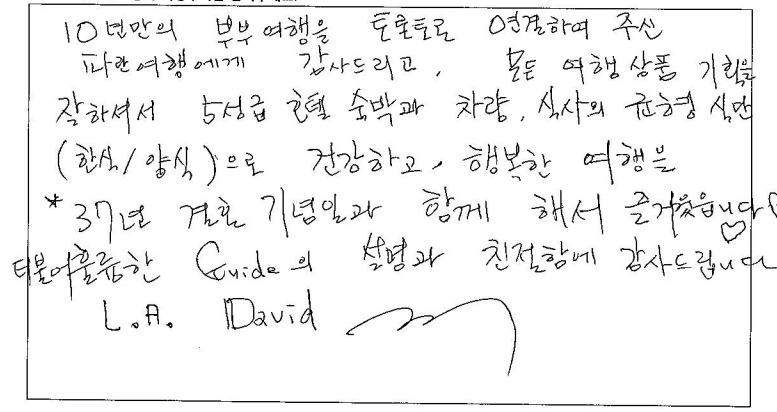 10년만의 부부여행을 토론토로 연결하여 주신
파란여행에게 감사드리고, 모든 여행상품 기획을
잘하셔서 5성급 호텔 숙박과 차량, 식사의 균형 식단
(한식/양식)으로 건강하고, 행복한 여행을
* 37년 결혼 기념일과 함께 해서 즐거웠읍니다
더불어 훌륭한 Guide의 설명과 친절함에 감사드립니다
L.A. David